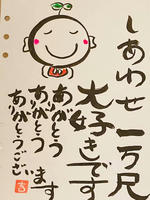 しあわせ一万尺
大好きです
ありがとう
ありがとう
ありがとうござい
ます